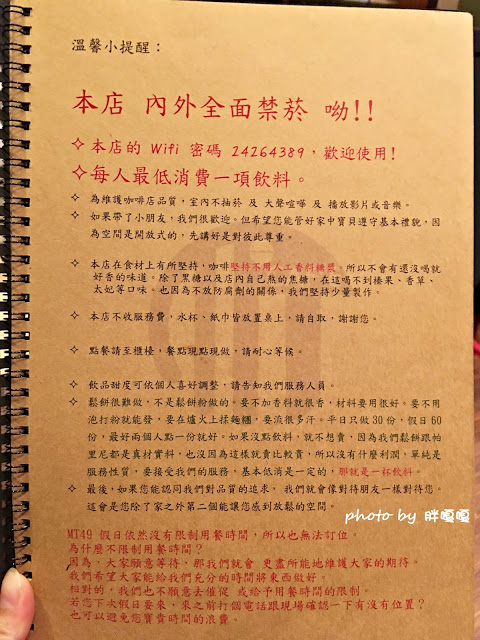 溫馨小提醒：
本店 內外全面禁菸 呦!!
✧本店的 Wifi 密碼 24264389，歡迎使用!
✧每人最低消費一項飲料。
✧ 為維護咖啡店品質，室內不抽菸 及 大聲喧嘩 及 播放影片或音樂。
✧ 如果帶了小朋友，我們很歡迎。但希望您能管好家中寶貝遵守基本禮貌，因
為空間是開放式的，先講好是對彼此尊重。
✧ 本店在食材上有所堅持，咖啡堅持不用人工香料糖漿。所以不會有還沒喝就
好香的味道。除了黑糖以及店內自己熬的焦糖，在這喝不到榛果、香草、
太妃等口味。也因為不放防腐劑的關係，我們堅持少量製作。
✧ 本店不收服務費，水杯、紙巾皆放置桌上，請自取，謝謝您。
✧ 點餐請至櫃檯，餐點現點現做，請耐心等候。
✧ 飲品甜度可依個人喜好調整，請告知我們服務人員。
✧ 鬆餅很難做，不是鬆餅粉做的。要不加香料就很香，材料要用很好。要不用
泡打粉就能發，要在爐火上揉麵糰，要流很多汗。平日只做30份，假日60
份，最好兩個人點一份就好。如果沒點飲料，就不想賣，因為我們鬆餅跟帕
里尼都是真材實料，也沒因為這樣就賣比較貴，所以沒有什麼利潤，單純是
服務性質，要接受我們的服務，基本低消是一定的，那就是一杯飲料。
✧ 最後，如果您能認同我們對品質的追求， 我們就會像對待朋友一樣對待您。
這會是您除了家之外第二個能讓您感到放鬆的空間。
photo by 胖嘎嘎
MT49 假日依然沒有限制用餐時間，所以也無法訂位。
為什麼不限制用餐時間？
因為，大家願意等待，那我們就會 更盡所能地維護大家的期待。
我們希望大家能給我們充分的時間將東西做好。
相對的，我們也不願意去催促 或給予用餐時間的限制。
若您下次假日要來，來之前打個電話跟現場確認一下有沒有位置？
也可以避免您寶貴時間的浪費。